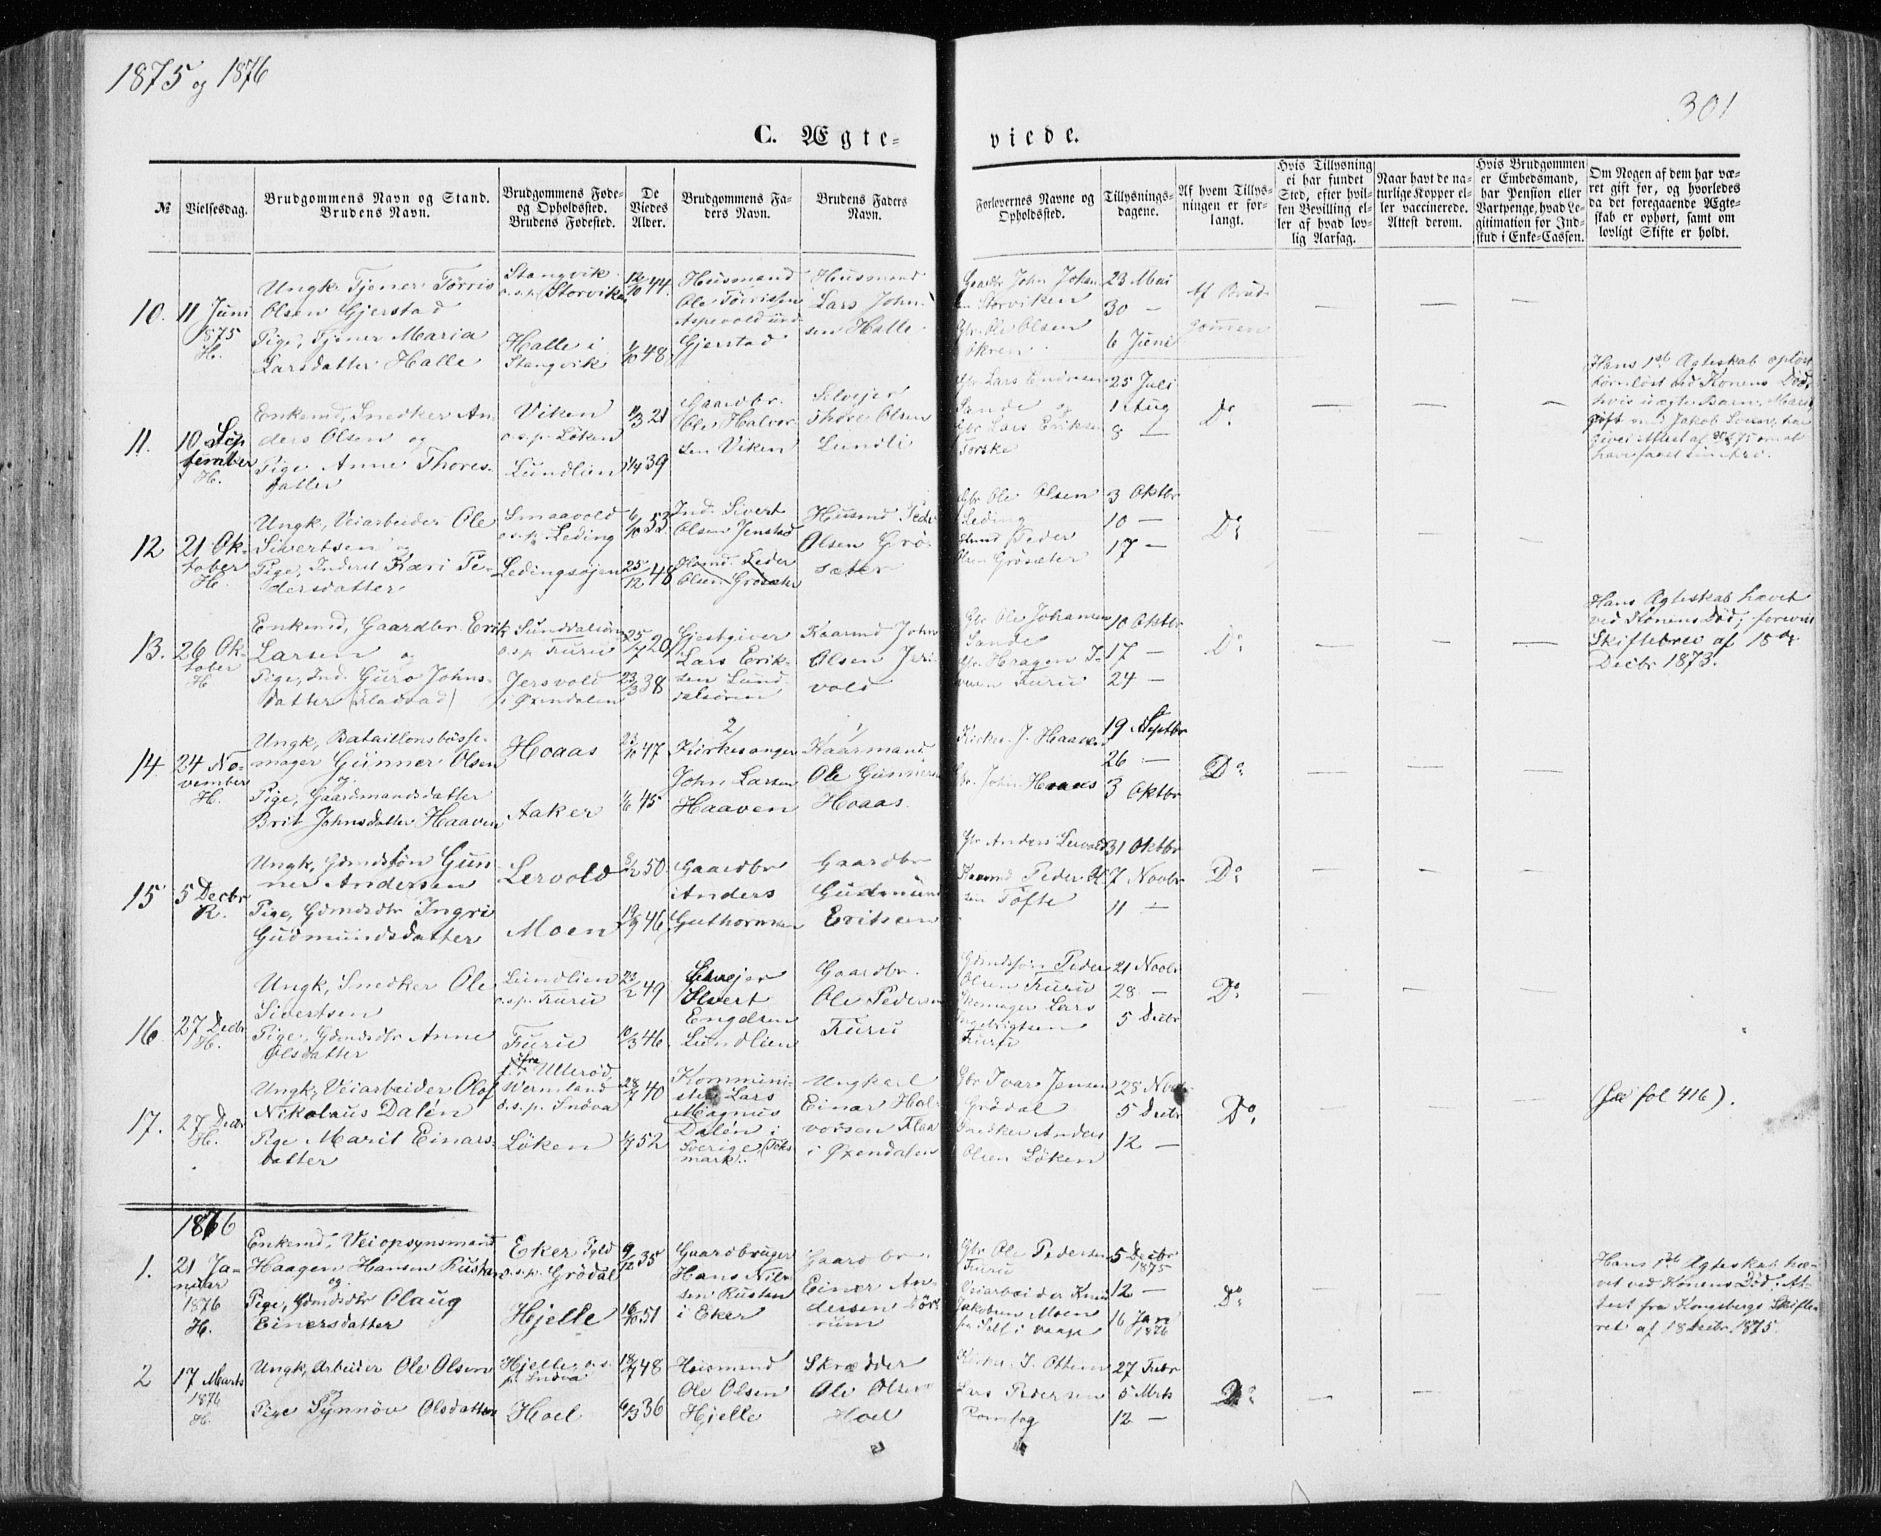 1875 og 1876
301
C. Ægte-
viede.
№
Vielsesdag.
Brudgommens Navn og Stand.
Brudens Navn.
Brudgommens Føde-
og Opholdssted.
Brudens Fødested.
De
Viedes
Alder.
Brudgommens Fa-
ders Navn.
Brudens Faders
Navn.
Forlovernes Navne og
Opholdssted.
Tillysnings-
dagene.
Af hvem Tillys-
ningen er for-
langt.
Hvis Tillysning
ei har fundet
Sted, efter hvil-
ken Bevilling el-
ler af hvad lov-
lig Aarsag.
Naar havt de na-
turlige Kopper el-
ler vaccinerede.
Attest derom.
Hvis Brudgommen
er Embedsmand,
har Pension eller
Vartpenge, hvad Le-
gitimation for Ind-
skud i Enke-Cassen.
Om Nogen af dem har væ-
ret gift før, og hvorledes
da det foregaaende Ægte-
skab er ophørt, samt om
lovligt Skifte er holdt.
10.
11 Juni
1875
H.
Ungk. Tjener Tørris
Olsen Gjerstad
Pige, Tjener Maria
Larsdatter Halle
Stangvik
o.s.p. Storviken
Halle i
Stangvik
44
48
Husmand
Ole Tørrissen
Gjerstad
Husmand
Lars John-
sen Halle
Gaardbr John Johan
sen Storviken
Gbr. Ole Olsen
23 Mai
30 —
6 Juni
Af Brud
gommen
11.
10 Sep
tember
H.
Enkemd, Snedker An-
ders Olsen og
Pige Anne Thores-
datter
Viken
o.s.p. Løken
Lundlien
1/3 21
39
Gaardbr.
Ole Halvor
sen Viken
Selvejer
Thore Olsen
Lundli
Gbr Lars Endresen
Sande og
Gbr Lars Eriksen
25 Juli
1 Aug
8 —
Do
Hans 1ste Ægteskab opløst
børnløst ved Konens Død,
12
21 Ok-
tober
H.
Ungk, Veiarbeider Ole
Sivertsen og
Pige, Inderst Kari Pe-
dersdatter
Smaavold
o.s.p. Leding
Ledingsøjen
6/10 53
25/12 48
Ind. Sivert
Olsen Jenstad
Husmd. Peder
Olsen Grøsæter
Husmd Peder
Olsen Grø-
sæter
Gbr Ole Olsen
Leding
Husmd Peder
Olsen Grøsæter
3 Oktbr
10 —
17 —
Do
13.
26 Ok-
tober
H
Enkemd, Gaardbr. Erik
Larsen og
Pige, Ind. Guro Johns-
datter (Fladstad)
Sundalsøren
o.s.p Furu
Jersvold
i Øxendalen
25/7 20
23/3 38
Gjestgiver
Lars Erik-
sen Sund
alsøren
Kaarmd John
Olsen Jers
vold
Gbr Ole Johansen
Sande
Gbr. Haagen I-
versen Furu
10 Oktbr
17 —
24 —
Do
Hans Ægteskab hævet
ved Konens Død; forevist
Skiftebrev af 18de
Decbr 1873.
14.
24 No-
vember
H.
Ungk, Bataillonsbøsse-
mager Gunner Olsen
og
Pige, Gaardmandsdatter
Brit Johnsdatter Haaven
Hoaas
Aaker
47
45
2/
Kirkesanger
John Larsen
Haaven
1/
Kaarmand
Ole Gunnersen
Hoaas
Kirkes. J. Haaven
Gbr. John Hoaas
19 Septbr
26 —
3 Oktbr
Do
15
5 Decbr
K.
Ungk, Gdmdssøn Gun
ner Andersen
Pige, Gdmdsdtr Ingri
Gudmundsdatter
Lervold
Moen
50
19/9 46
Gaardbr
Anders
Guthormsen
Gaardbr
Gudmund
Eriksen
Gbr Anders Lervold
Kaarmd Peder Ol
sen Tofte
31 Oktbr
7 Novbr
11 —
Do
16
27 Decbr
H.
Ungk, Snedker Ole
Sivertsen
Pige, Gdmdsdtr Anne
Olsdatter
Lundlien
o.s.p. Furu
Furu
49
10/3 46
Selvejer
Sivert
Engelsen
Lundlien
Gaardbr.
Ole Pedersen
Furu
Gdmdssøn Peder
Olsen Furu
Skomager Lars
Ingebrigtsen
Furu
21 Novbr
28 —
5 Decbr
Do
17.
27 Decbr
H.
Ungk, Veiarbeider Olof
Nikolaus Dalén
Pige Marit Einars-
datter
fra Ullerød,
Wermland
o.s.p. Snøva
Løken
28/7 40
52
Kommini-
ster Lars
Magnus
Dalén i
Sverige
Ungkarl
Einar Hal-
vorsen Flaa
i Øxendalen
Gbr Ivar Jensen
Grødal
Snedker Anders
Olsen Løken
28 Novbr
5 Decbr
12 —
Do
(Se fol 416).
1876
1.
21 Ja-
nuar
1876
H.
Enkemd, Veiopsynsmand
Haagen Hansen Rustan
og
Pige, Gdmdsdtr Olaug
Einersdatter
Eker
o.s.p. Grødal
Hjelle
9/12 35
16/10 51
Gaardbruger
Hans Nil-
sen Rusten
i Eker
Gaardbr.
Einer An-
dersen Dør-
rum
Gbr Ole Pedersen
Furu
Veiarbeider Knud
Jakobsen Moen
5 Decbr
1875
12 —
16 Jan
1876
Do
Hans 1ste Ægteskab hæ-
vet ved Konens Død. At-
test fra Kongsbergs Skifte-
ret af 18 Decbr. 1875.
2
17 Marts
1876
H.
Ungk, Arbeider Ole Olsen
og
Pige Synnøv Olsdatter
Hjelle o.s.
p. Snøva
Hoel
18/7 48
6/3 36
Husmand
Ole Olsen
Hjelle
Skrædder
Ole Olsen
Hoel
Kirkes. I. Ottem
Lars Pedersen
Romfog
27 Febr
5 Mrts
12 —
Do